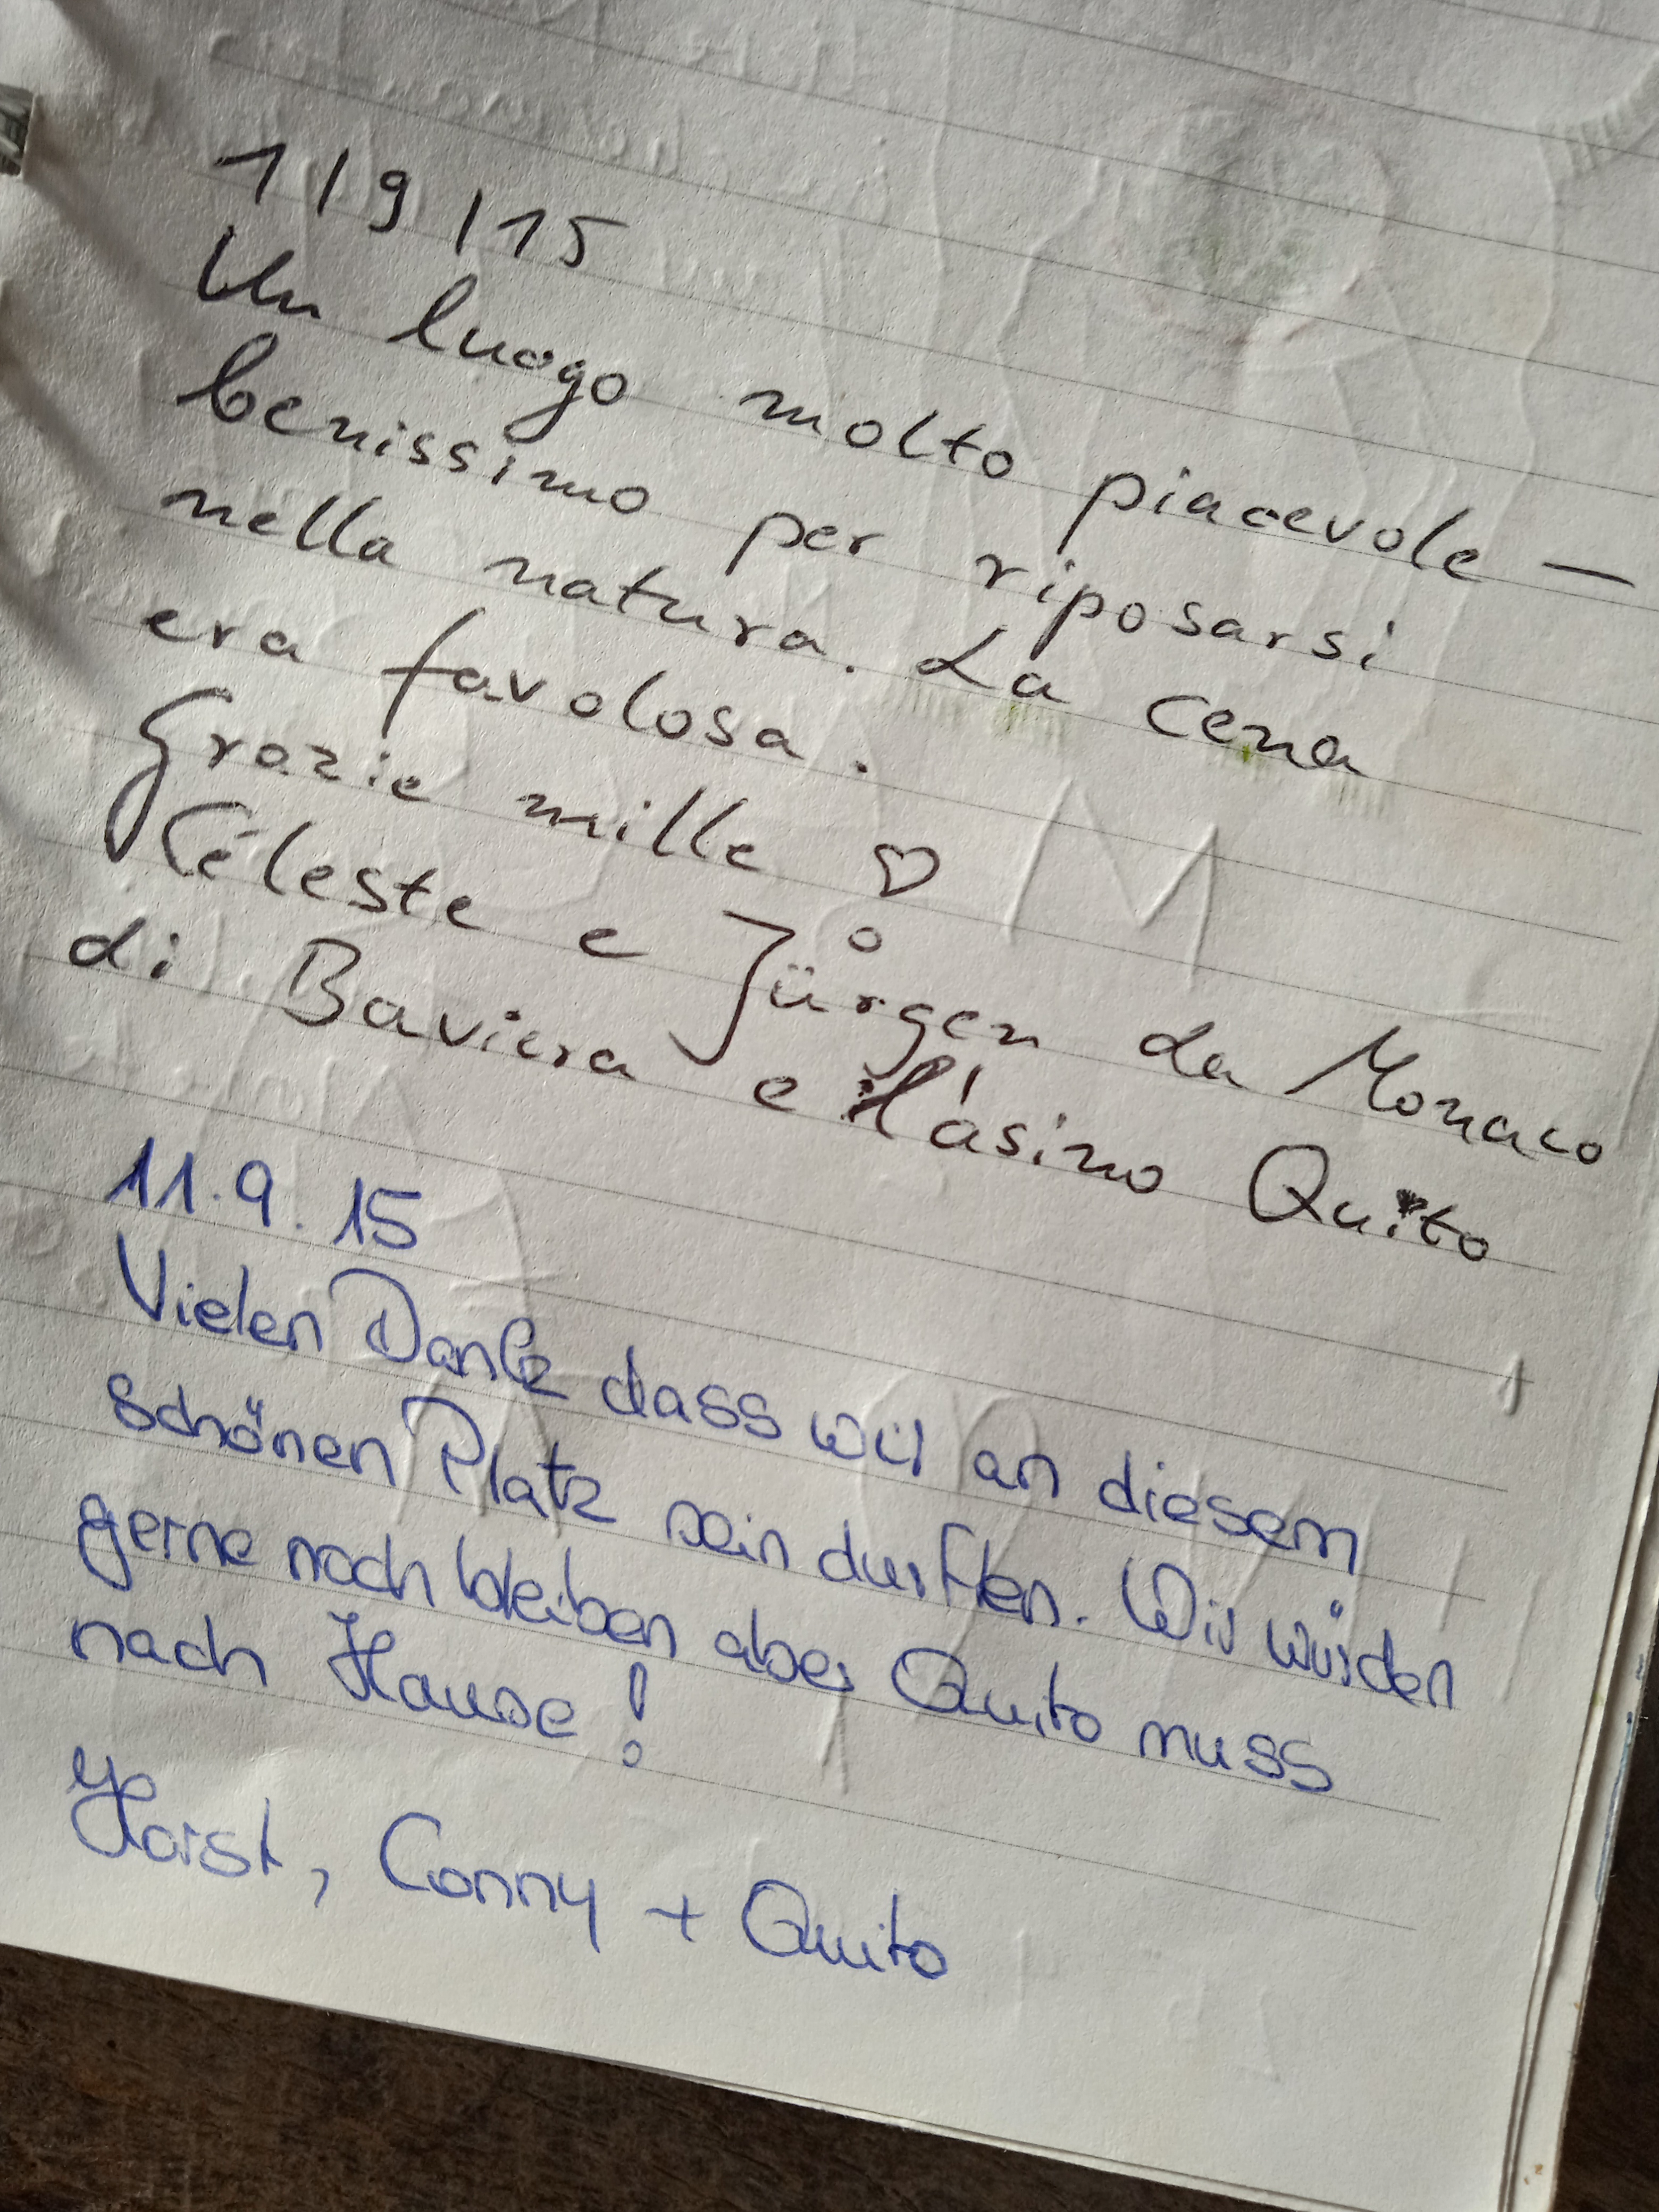 1/9/15
Un luogo molto piacevole —
benissimo per riposarsi
nella natura. La cena
era favolosa.
Grazie mille ♡
Céleste e Jürgen da Monaco
di Baviera e l'asino Quito
11.9.15
Vielen Dank dass wir an diesem
schönen Platz sein durften. Wir würden
gerne noch bleiben aber Quito muss
nach Hause!
Horst, Conny + Quito